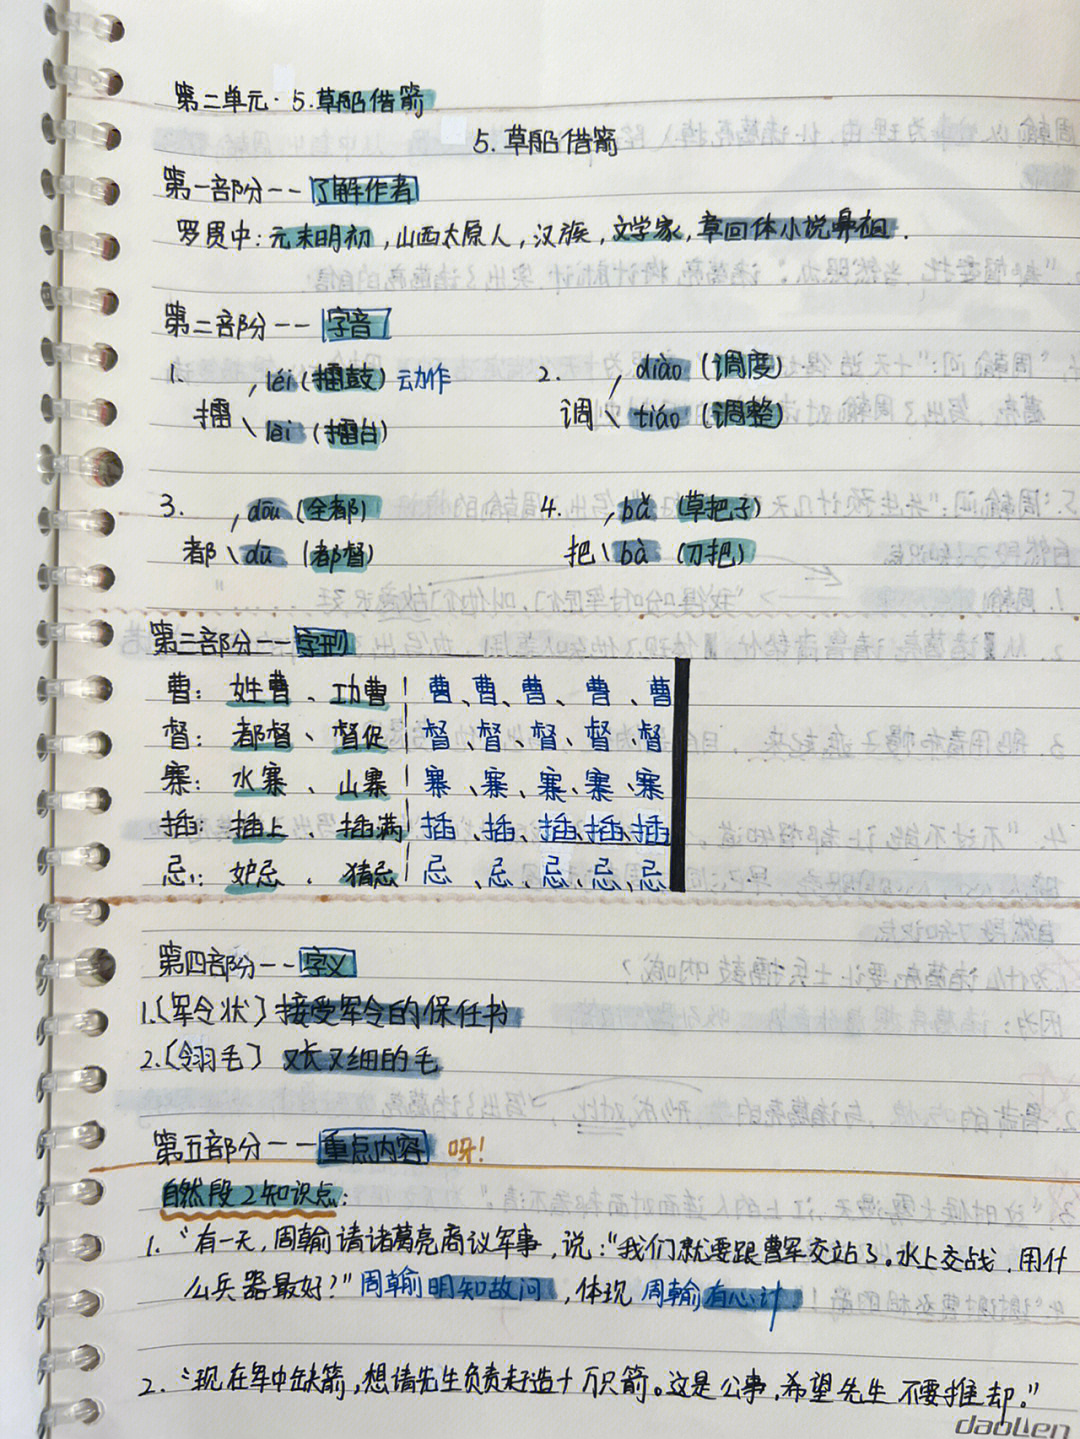 第二单元·5.草船借箭
5.草船借箭
第一部分--了解作者
罗贯中:元末明初,山西太原人,汉族,文学家,章回体小说鼻祖.
第二部分--字音
1. 擂 léi(擂鼓)动作 2. 调 diào(调度)
lèi(擂台) tiáo(调整)
3. 都 dōu(全都) 4. 把 bǎ(草把子)
dū(都督) bà(刀把)
第三部分--字形
曹:姓曹、功曹 曹、曹、曹、曹、曹
督:都督、督促 督、督、督、督、督
寨:水寨、山寨 寨、寨、寨、寨、寨
插:插上、插满 插、插、插、插、插
忌:妒忌、猜忌 忌、忌、忌、忌、忌
第四部分--字义
1.〔军令状〕接受军令的保任书
2.〔翎毛〕又长又细的毛
第五部分--重点内容呀!
自然段2知识点:
1."有一天,周瑜请诸葛亮商议军事,说:"我们就要跟曹军交站了。水上交战,用什
么兵器最好?"周瑜明知故问,体现周瑜有心计!
2."现在军中缺箭,想请先生负责赶造十万只箭。这是公事,希望先生不要推却。"
daolen